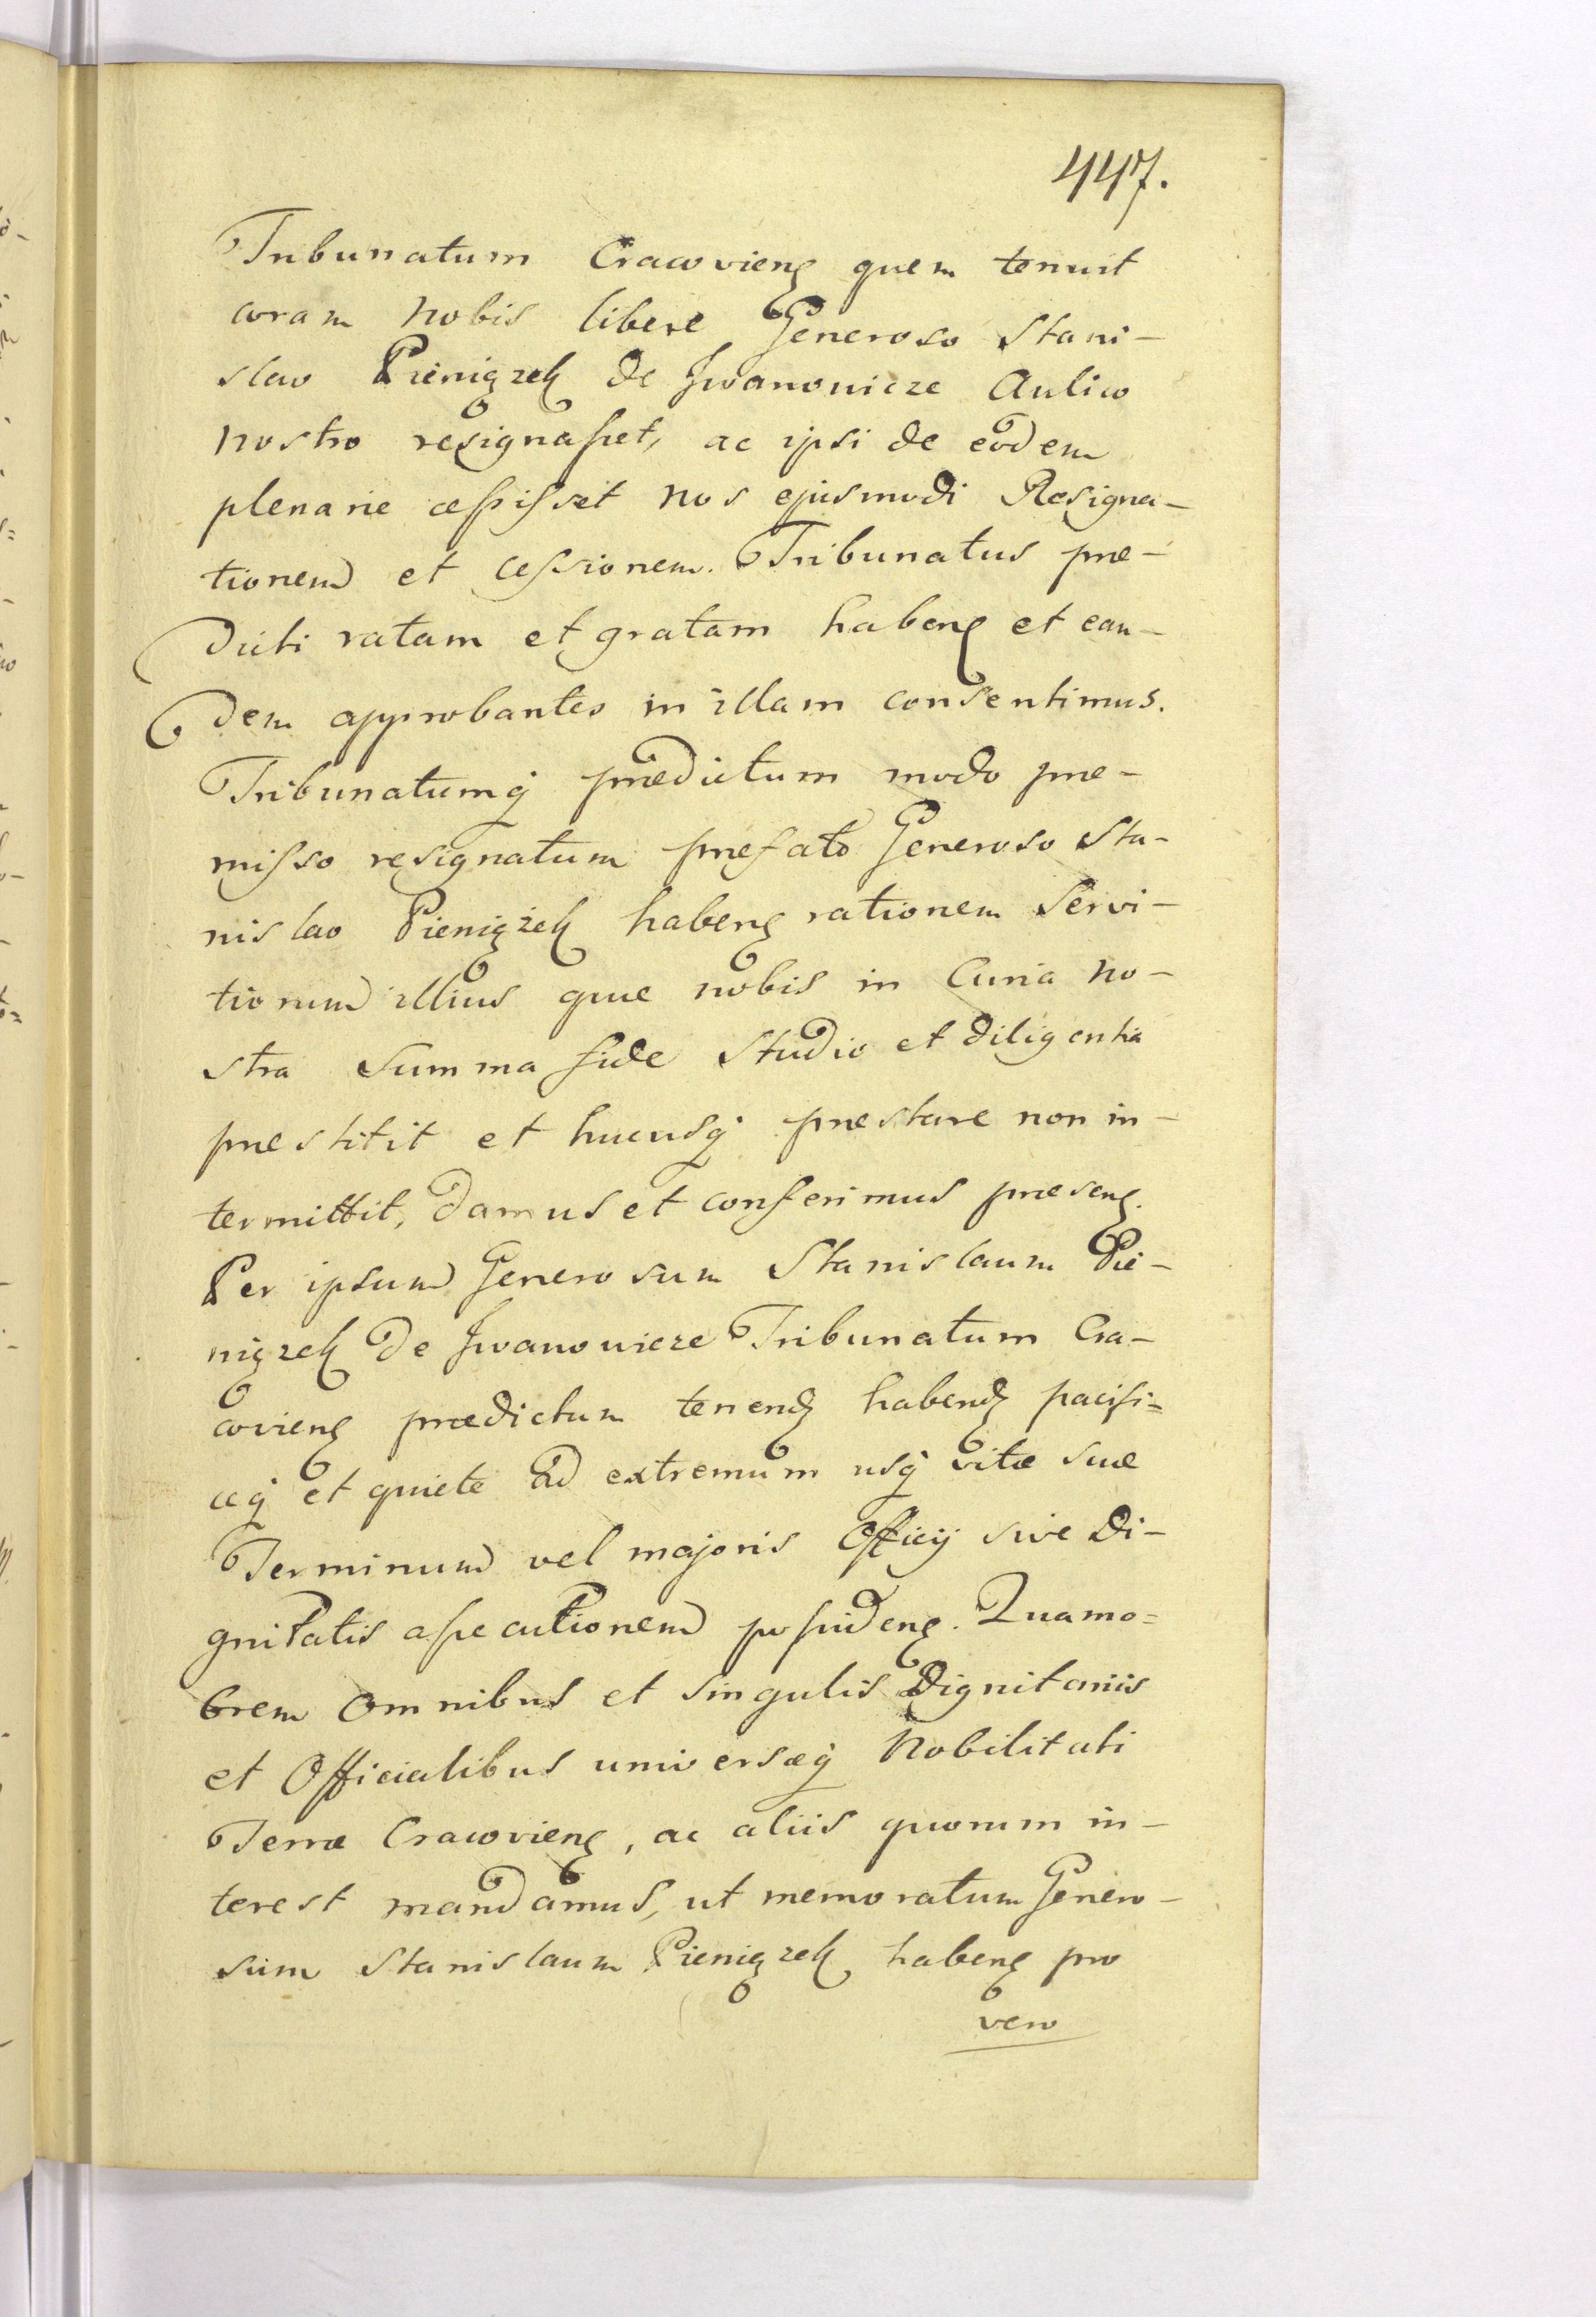 447.
Tribunatum Cracovieng quem tenuit
coram nobis libere Generoso Stani-
slao Pieniązek de Jwanowicze Aulico
nostro resignaſset, ac ipsi de eodem
plenarie ceſsiſset nos ejusmodi Resigna-
tionem et ceſsionem Tribunatus præ-
dicti ratam et gratam habeng et ean-
dem approbantes in illam consentimus.
Tribunatumq́ prædictum modo præ-
miſso resignatum præfato Generoso Sta-
nislao Pieniążek habeng rationem Servi-
tiorum illius quæ nobis in Curia no-
stra Summa fide Studio et diligentia
præstitit et hucusq́ præstare non in-
termittit, damus et conferimus præseng.
Per ipsum Generosum Stanislaum Pie-
niązek de Jwanowicze Tribunatum Cra-
covieng prædictum tenendg habendg pacifi=
ceq́ et quiete ad extremum usq́ vitæ suæ
Terminum vel majoris Officij sive Di-
gnitatis aſsecutionem poſsideng. Quamo=
brem Omnibus et Singulis Dignitariis
et Officialibus universæq́ Nobilitati
Terræ Cracovieng, ac aliis quorum in-
terest mandamus, ut memoratum Genero-
sum Stanislaum Pieniązek habeng pro
vero